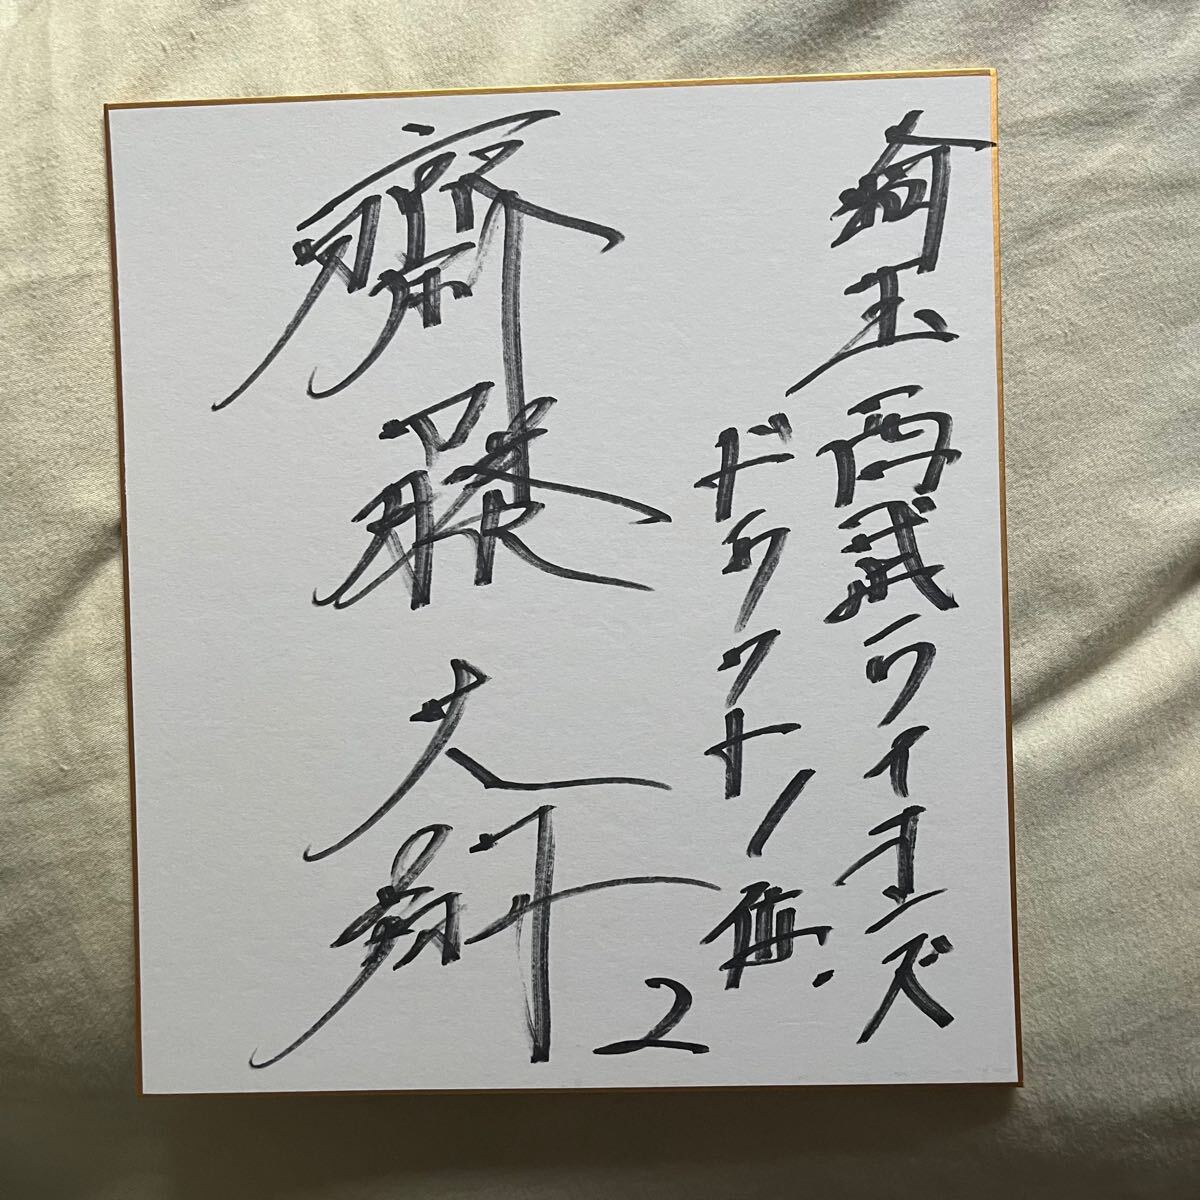 埼玉西武ライオンズ
ドラフト1位.
2
齊藤大翔